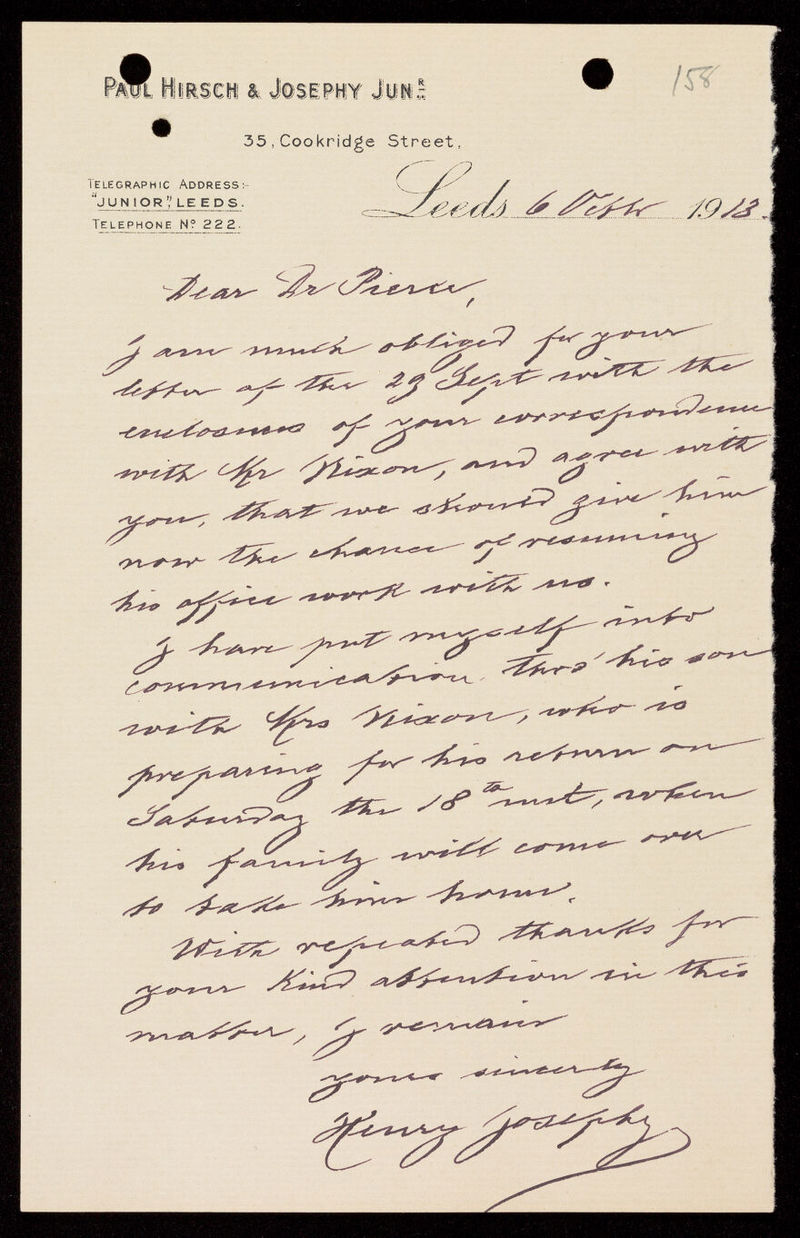 158
PAUL HIRSCH & JOSEPHY JUNR.
35, Cookridge Street,
TELEGRAPHIC ADDRESS:-
"JUNIOR", LEEDS.
TELEPHONE No 222.
Leeds 6 Octbr 1913.
Dear Dr Pierce,
I am much obliged for your
letter of the 29 Sept with the
enclosures of your correspondence
with Mr Nixon, and agree with
you, that we should give him
now the chance of resuming
his office work with us.
I have put myself into
communication thro' his son
with Mrs Nixon, who is
preparing for his return on
Saturday the 18th inst, when
his family will come over
to take him home.
With repeated thanks for
your kind attention in this
matter, I remain
yours sincerely
Henry Josephy